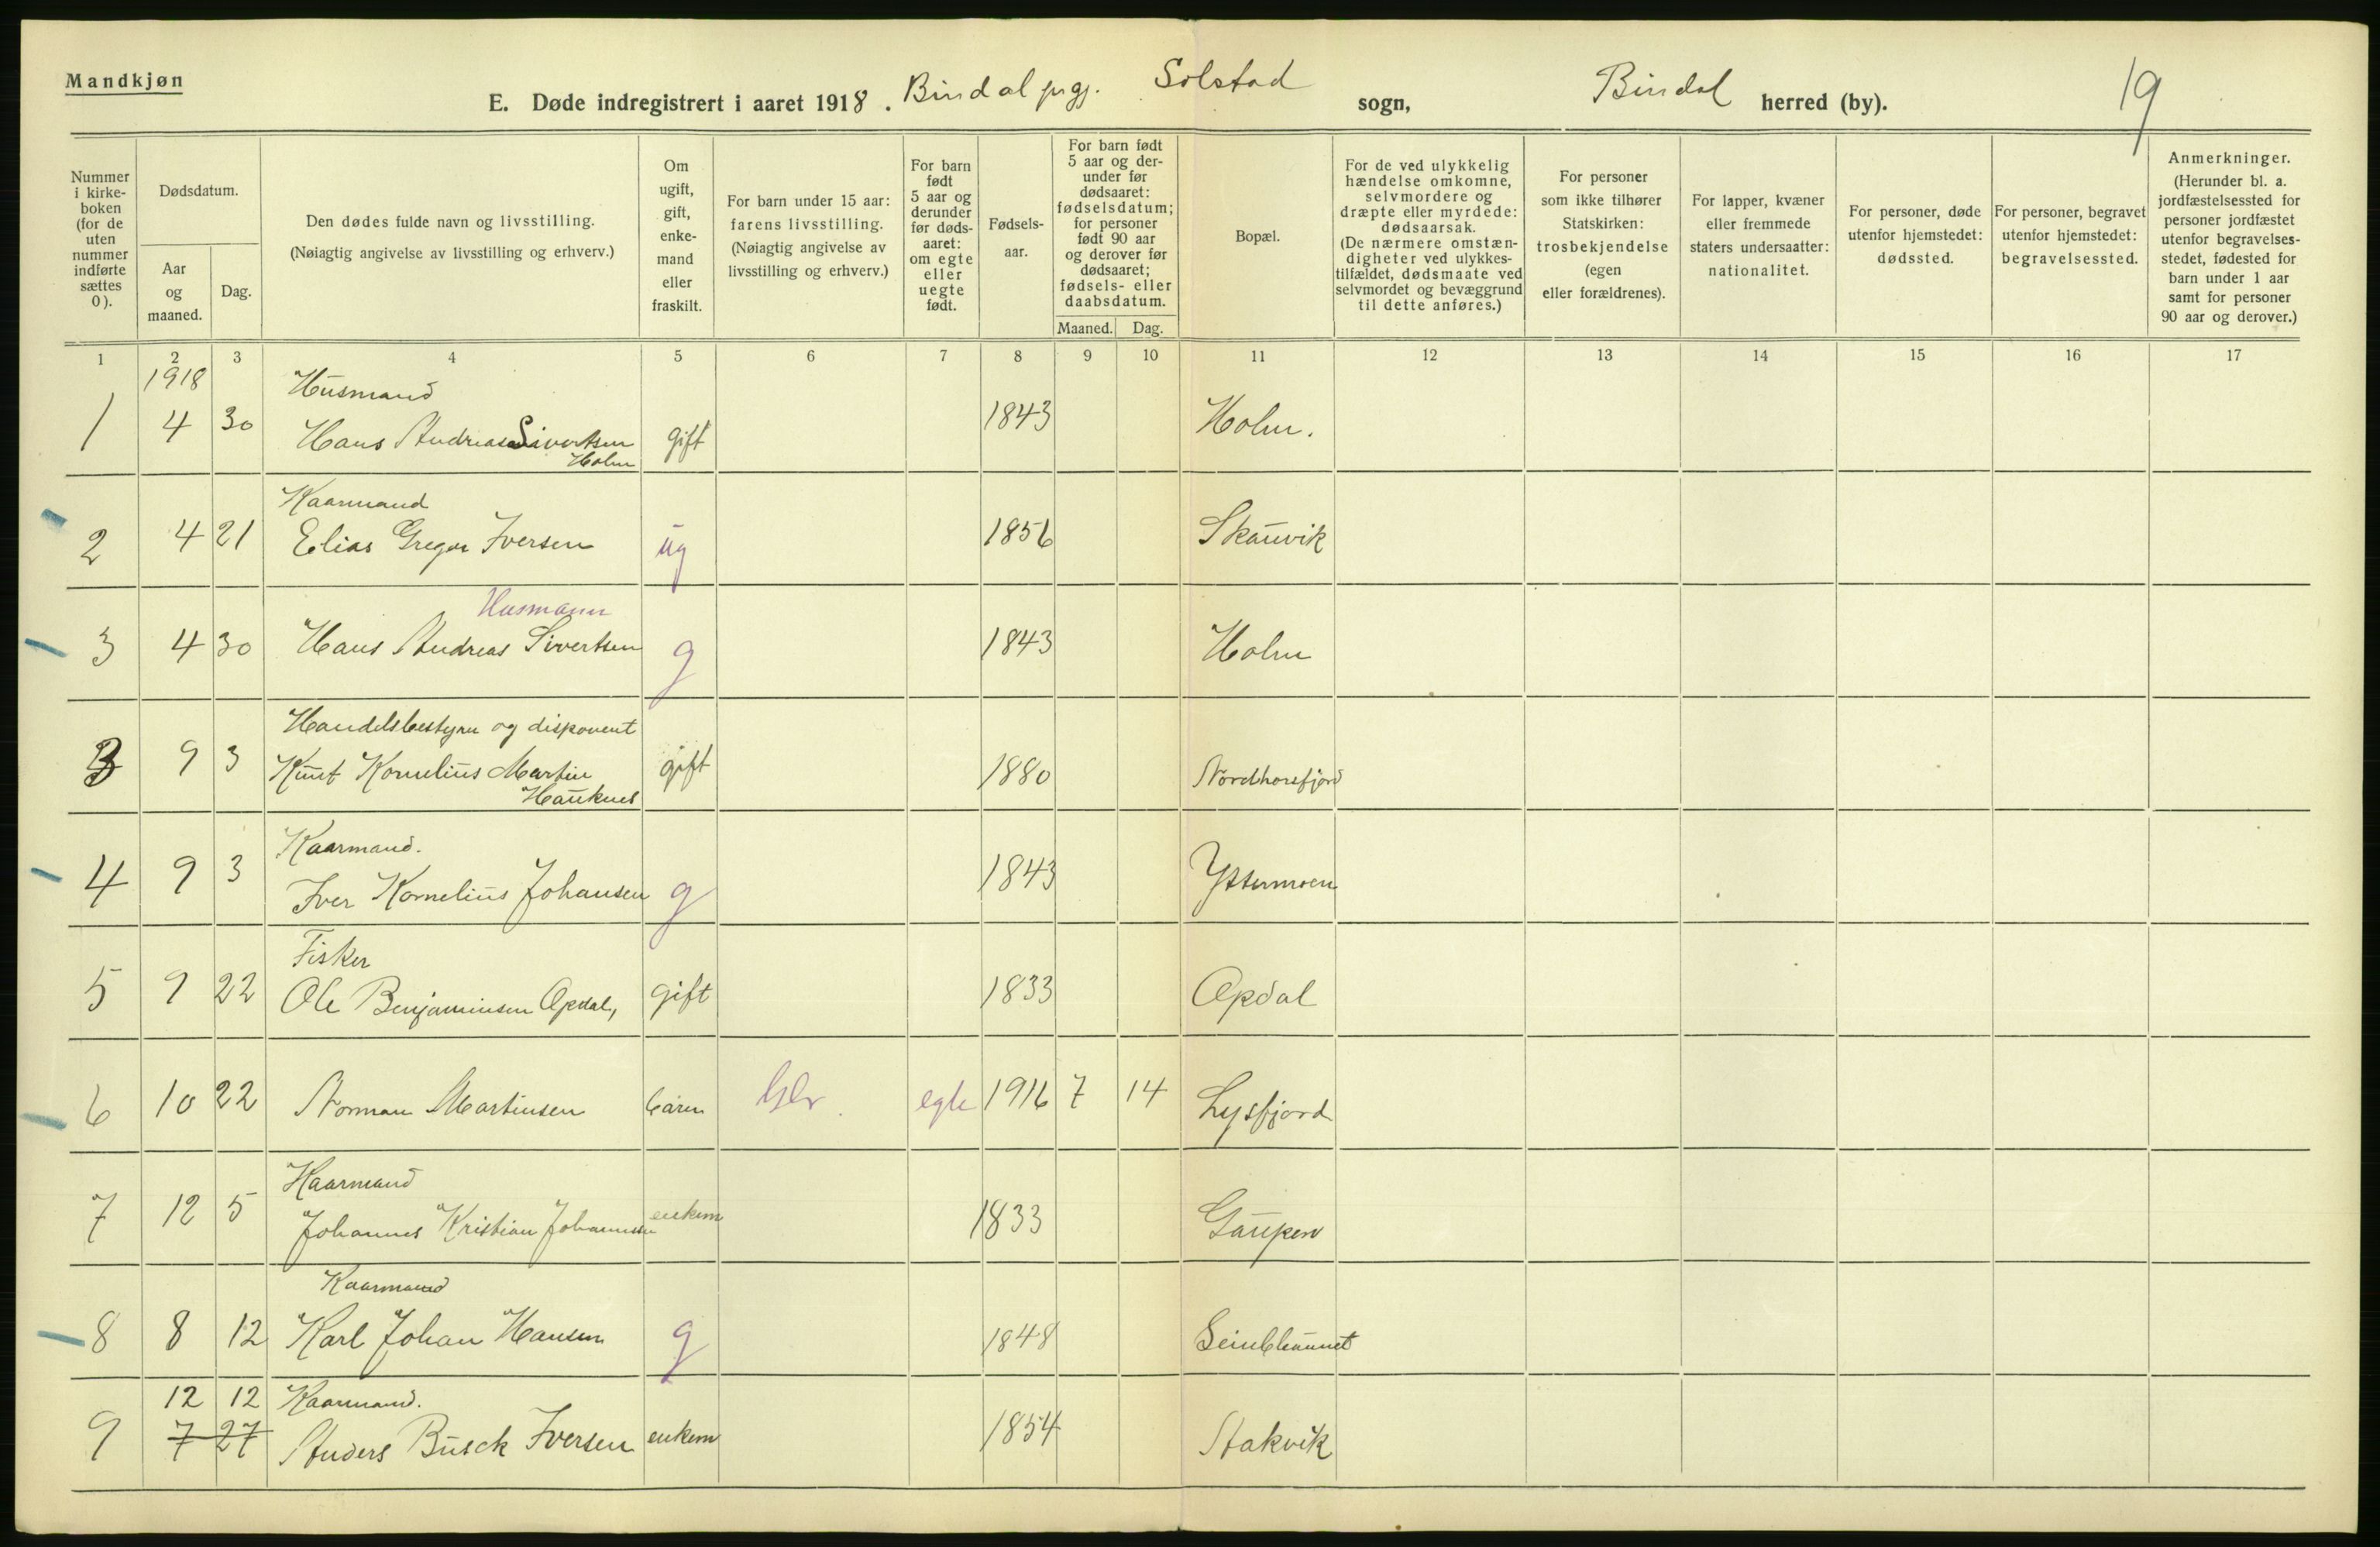 Mandkjøn
E. Døde indregistrert i aaret 1918. Bindal prgj. Solstad sogn, Bindal herred (by). 19
Nummer i kirke- boken (for de uten nummer indførte sættes 0).
Dødsdatum.
Aar og maaned.
Dag.
Den dødes fulde navn og livsstilling.
(Nøiagtig angivelse av livsstilling og erhverv.)
Om ugift, gift, enke- mand eller fraskilt.
For barn under 15 aar: farens livsstilling.
(Nøiagtig angivelse av livsstilling og erhverv.)
For barn født 5 aar og derunder før døds- aaret: om egte eller uegte født.
Fødsels- aar.
For barn født 5 aar og der- under før dødsaaret: fødselsdatum; for personer født 90 aar og derover før dødsaaret; fødsels- eller daabsdatum.
Maaned. Dag.
Bopæl.
For de ved ulykkelig hændelse omkomne, selvmordere og dræpte eller myrdede: dødsaarsak.
(De nærmere omstæn- digheter ved ulykkes- tilfældet, dødsmaate ved selvmordet og bevæggrund til dette anføres.)
For personer som ikke tilhører Statskirken: trosbekjendelse (egen eller forældrenes).
For lapper, kvæner eller fremmede staters undersaatter: nationalitet.
For personer, døde utenfor hjemstedet: dødssted.
For personer, begravet utenfor hjemstedet: begravelsessted.
Anmerkninger.
(Herunder bl. a. jordfæstelsessted for personer jordfæstet utenfor begravelses- stedet, fødested for barn under 1 aar samt for personer 90 aar og derover.)
1 2 3 4 5 6 7 8 9 10 11 12 13 14 15 16 17
1918
Husmand
1 4 30 Hans Andreas Sivertsen gift 1843 Holm.
Holm
Kaarmand
2 4 21 Elias Gregor Iversen ug 1856 Skauvik
Husmann
3 4 30 Hans Andreas Sivertsen g 1843 Holm
Handelsbestyrer og disponent
3 9 3 Knut Kornelius Martin gift 1880 Nordhorsfjord
Hauknes
Kaarmand.
4 9 3 Iver Kornelius Johansen g 1843 Yttermoen
Fisker
5 9 22 Ole Benjaminsen Opdal, gift 1833 Opdal
6 10 22 Norman Martinsen barn egte 1916 7 14 Lysfjord
Kaarmand
7 12 5 Johannes Kristian Johannessen enkem 1833 Gaupen
Kaarmand
8 8 12 Karl Johan Hansen g 1848
12 12 Kaarmand.
9 7 27 Anders Busck Iversen enkem 1854 Stakvik